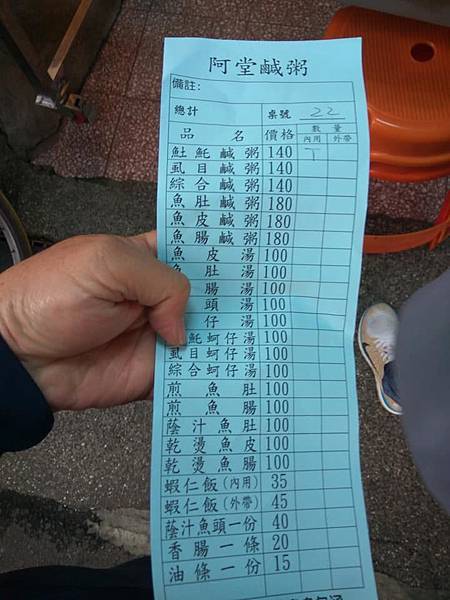 阿堂鹹粥
備註:
總計 桌號 22
品 名 價格 數量
內用 外帶
魠魠鹹粥 140
虱目鹹粥 140
綜合鹹粥 140
魚肚鹹粥 180
魚皮鹹粥 180
魚腸鹹粥 180
魚皮湯 100
魚肚湯 100
腸湯 100
頭湯 100
仔湯 100
魠蚵仔湯 100
虱目蚵仔湯 100
綜合蚵仔湯 100
煎魚肚 100
煎魚腸 100
蔭汁魚肚 100
乾燙魚皮 100
乾燙魚腸 100
蝦仁飯(內用) 35
蝦仁飯(外帶) 45
蔭汁魚頭一份 40
香腸一條 20
油條一份 15